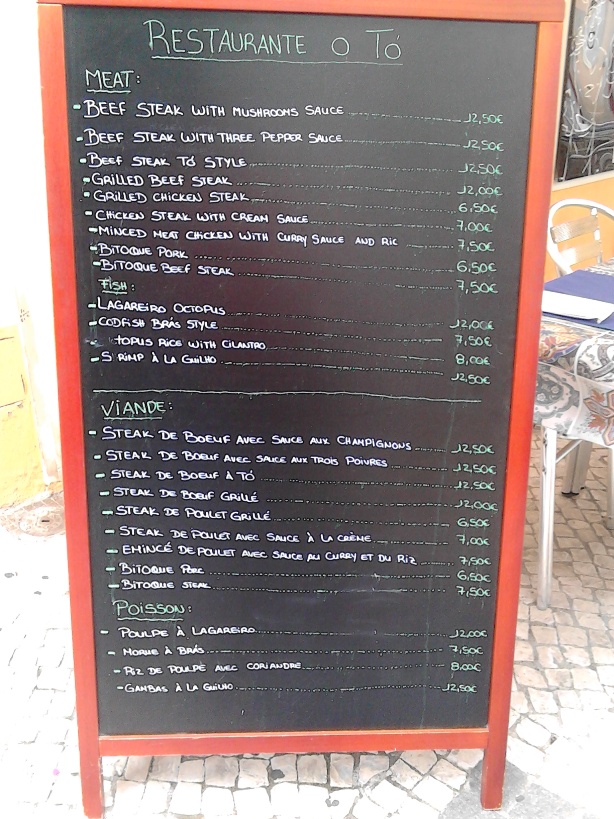 RESTAURANTE O TÓ
MEAT:
- BEEF STEAK WITH MUSHROOMS SAUCE 12,50€
- BEEF STEAK WITH THREE PEPPER SAUCE 12,50€
- BEEF STEAK TÓ STYLE 12,50€
- GRILLED BEEF STEAK 12,00€
- GRILLED CHICKEN STEAK 6,50€
- CHICKEN STEAK WITH CREAM SAUCE 7,00€
- MINCED MEAT CHICKEN WITH CURRY SAUCE AND RIC 7,50€
- BITOQUE PORK 6,50€
- BITOQUE BEEF STEAK 7,50€
FISH:
- LAGAREIRO OCTOPUS 12,00€
- CODFISH BRÁS STYLE 7,50€
- TOPUS RICE WITH CILANTRO 8,00€
- S RIMP À LA GUILHO 12,50€
VIANDE:
- STEAK DE BOEUF AVEC SAUCE AUX CHAMPIGNONS 12,50€
- STEAK DE BOEUF AVEC SAUCE AUX TROIS POIVRES 12,50€
- STEAK DE BOEUF À TÓ 12,50€
- STEAK DE BOEUF GRILLÉ 12,00€
- STEAK DE POULET GRILLÉ 6,50€
- STEAK DE POULET AVEC SAUCE À LA CRÈME 7,00€
- EMINCÉ DE POULET AVEC SAUCE AU CURRY ET DU RIZ 7,50€
- BITOQUE PORC 6,50€
- BITOQUE STEAK 7,50€
POISSON:
- POULPE À LAGAREIRO 12,00€
- MORUE À BRÁS 7,50€
- RIZ DE POULPE AVEC CORIANDRE 8,00€
- GAMBAS À LA GUILHO 12,50€